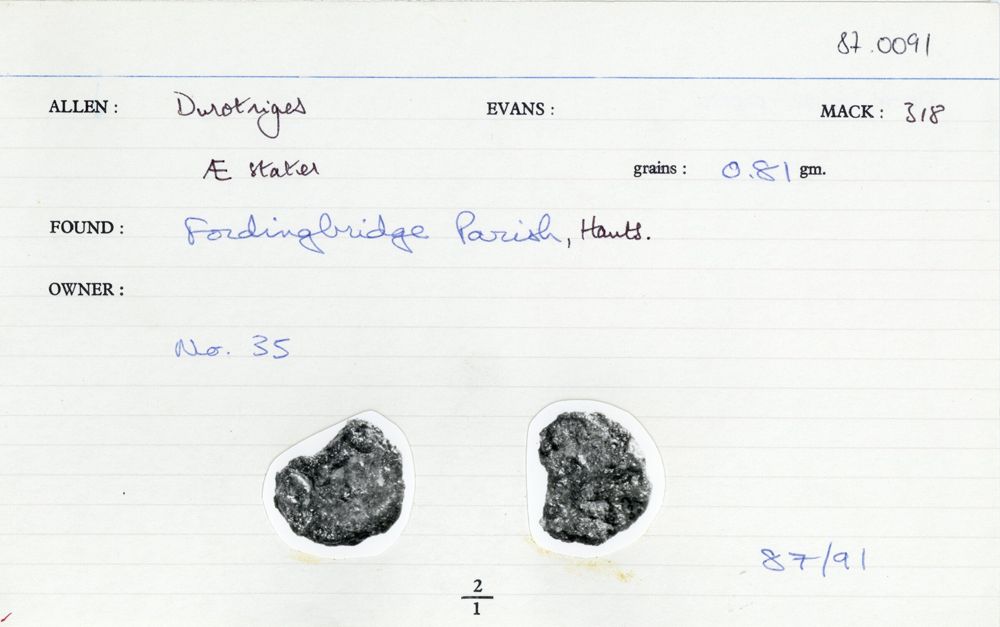 87.0091
ALLEN: Durotriges EVANS: MACK: 318
Æ stater grains: 0.81 gm.
FOUND: Fordingbridge Parish, Hants.
OWNER:
No. 35
87/91
2
1